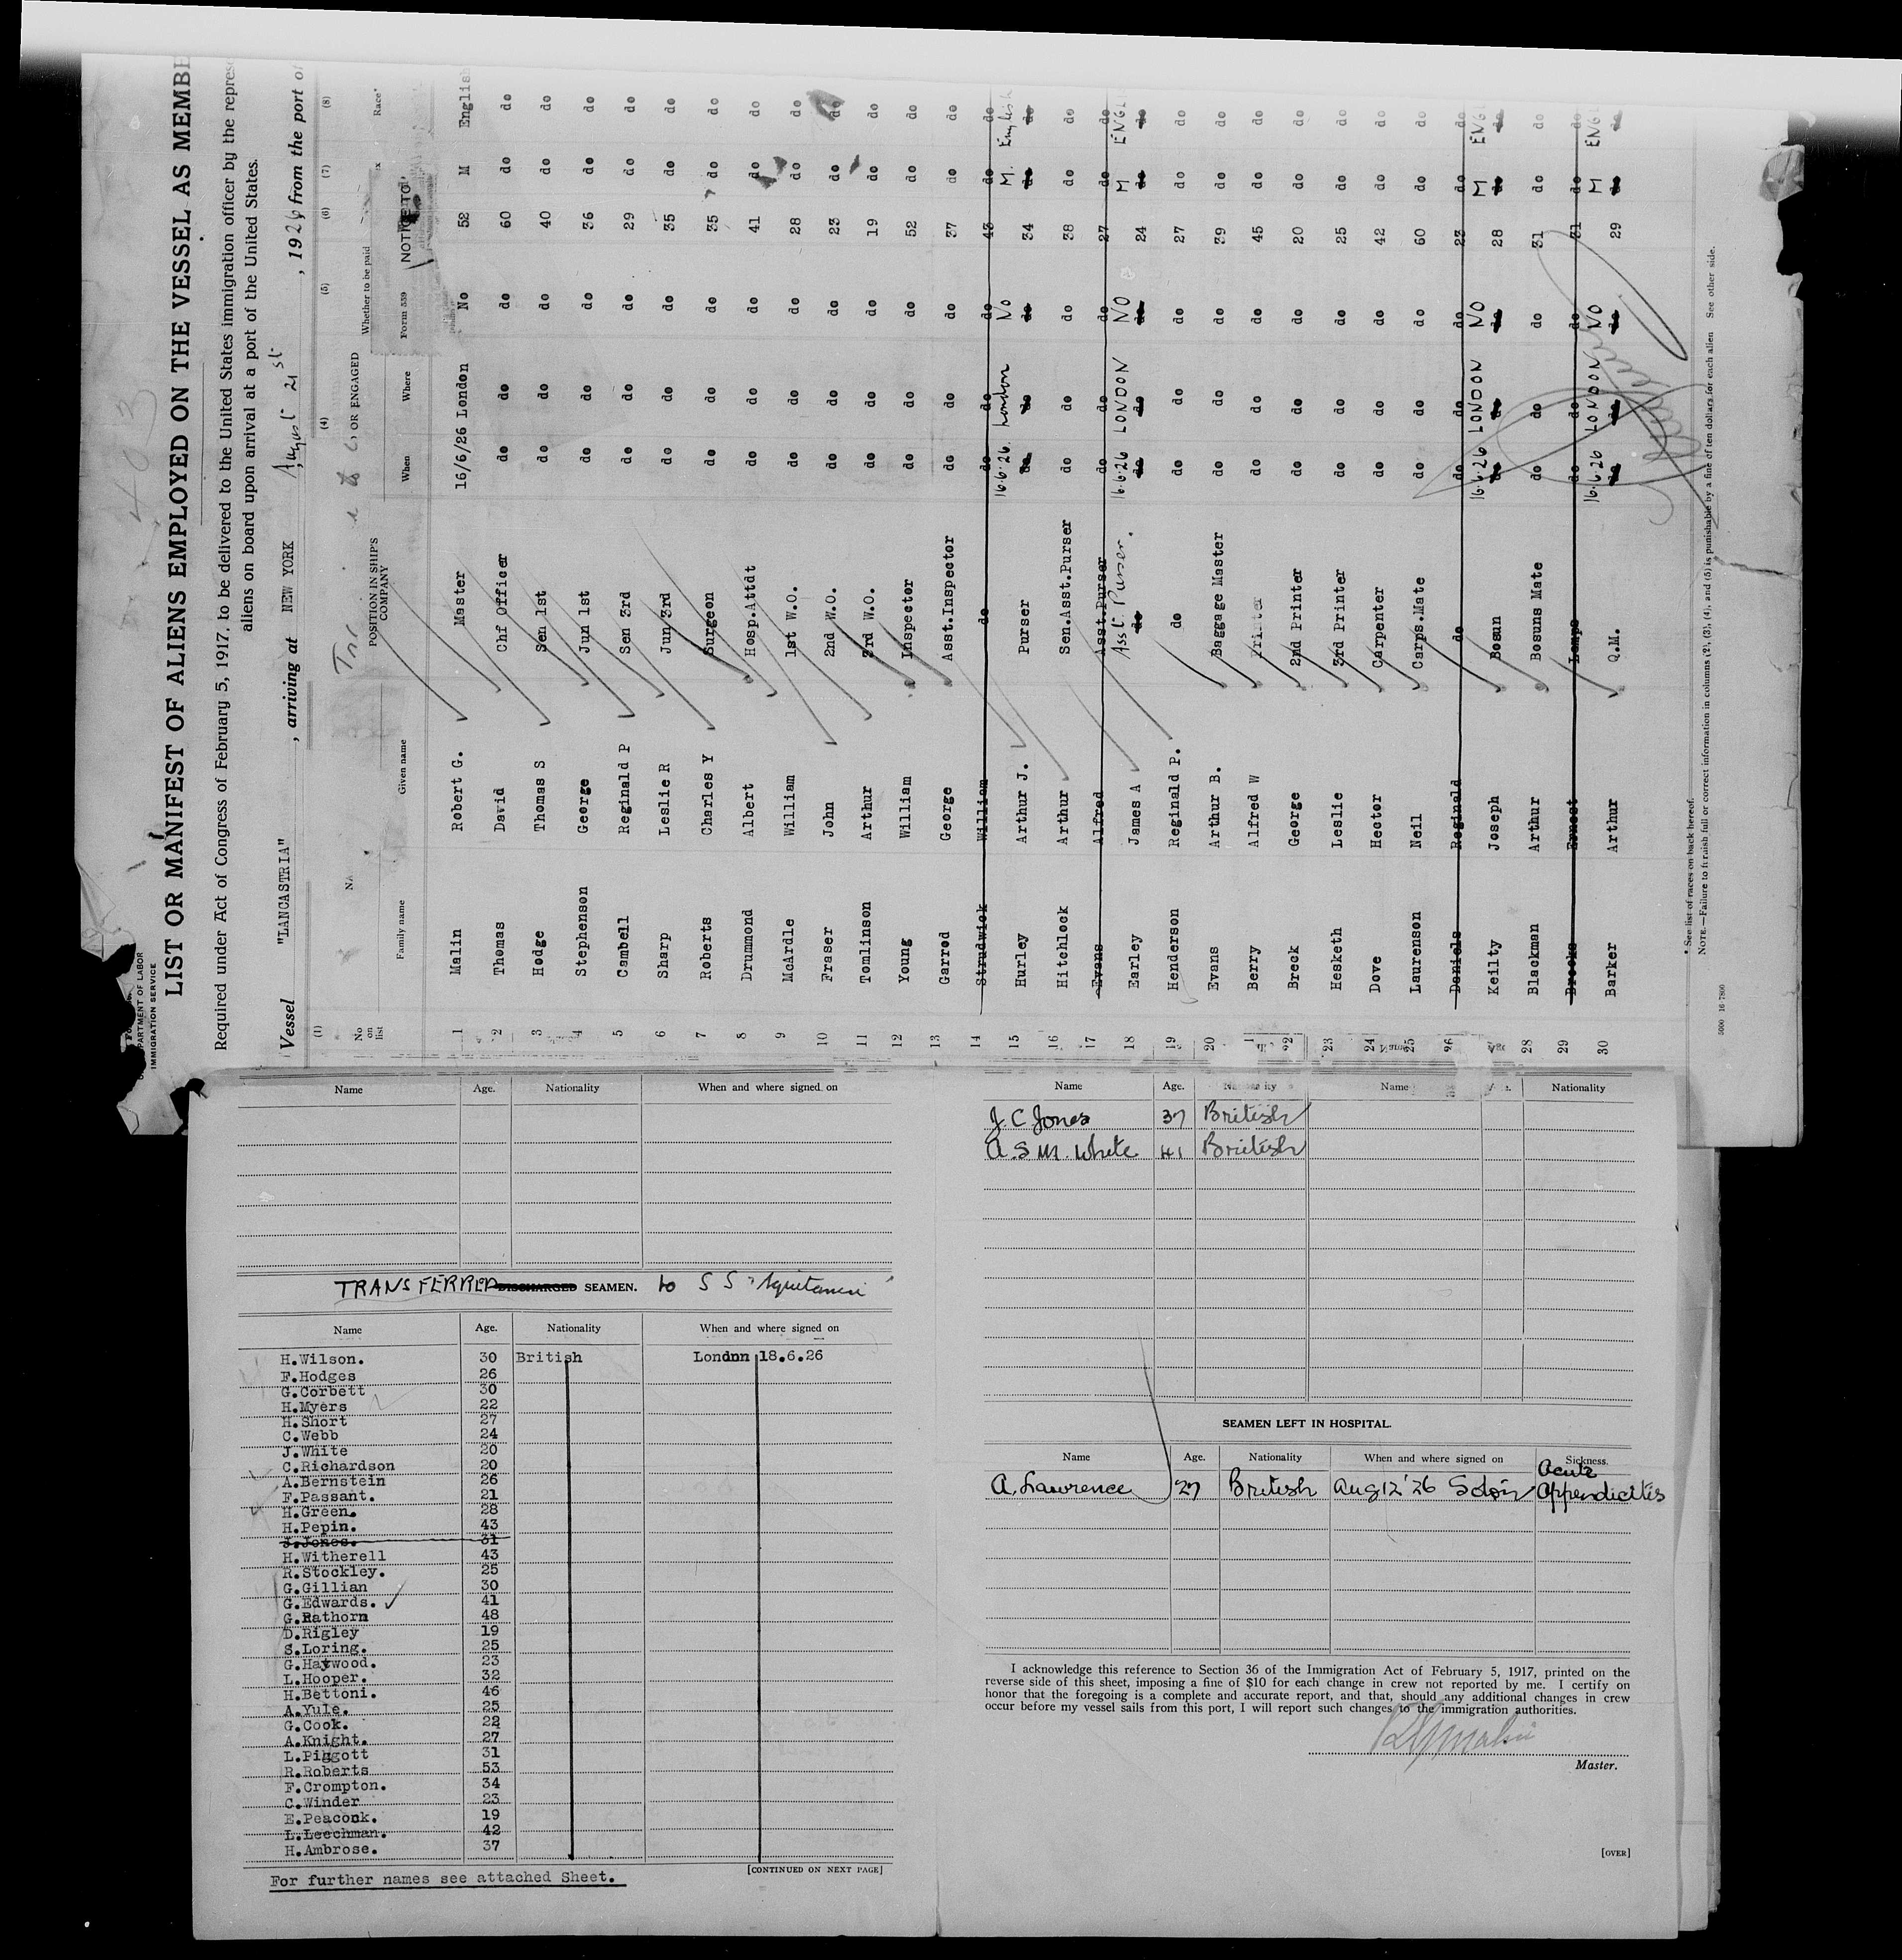 U. S. DEPARTMENT OF LABOR
IMMIGRATION SERVICE
LIST OR MANIFEST OF ALIENS EMPLOYED ON THE VESSEL AS MEMBE
Required under Act of Congress of February 5, 1917, to be delivered to the United States immigration officer by the repres
aliens on board upon arrival at a port of the United States.
Vessel "LANCASTRIA", arriving at NEW YORK August 21st, 1926 from the port of
(1) (4) (5) (6) (7) (8)
No on list Family name Given name POSITION IN SHIP'S COMPANY OR ENGAGED When Where Whether to be paid Form 559 NOTICE TO Race*
1 Malin Robert G. Master 16/6/26 London No 52 M English
2 Thomas David Chf Officer do do do 60 do do
3 Hodge Thomas S Sen 1st do do do 40 do do
4 Stephenson George Jun 1st do do do 36 do do
5 Cambell Reginald P Sen 3rd do do do 29 do do
6 Sharp Leslie R Jun 3rd do do do 35 do do
7 Roberts Charles Y Surgeon do do do 35 do do
8 Drummond Albert Hosp.Attdt do do do 41 do do
9 McArdle William 1st W.O. do do do 28 do do
10 Fraser John 2nd W.O. do do do 23 do do
11 Tomlinson Arthur 3rd W.O. do do do 19 do do
12 Young William Inspector do do do 52 do do
13 Garrod George Asst.Inspector do do do 37 do do
14 Strudwick William do do do do 43 do do
15 Hurley Arthur J. Purser 16.6.26. London No 34 M. English
16 Hitchlock Arthur Sen.Asst.Purser do do do 38 do do
17 Evans Alfred Asst.Purser do do do 27 do do
18 Earley James A Asst. Purser. 16.6.26 LONDON NO 24 M ENGLI
19 Henderson Reginald P. do do do do 27 do do
20 Evans Arthur B. Baggage Master do do do 39 do do
Berry Alfred W Printer do do do 45 do do
22 Breck George 2nd Printer do do do 20 do do
23 Hesketh Leslie 3rd Printer do do do 25 do do
24 Dove Hector Carpenter do do do 42 do do
25 Laurenson Neil Carps.Mate do do do 60 do do
26 Daniels Reginald do do do do 23 do do
Keilty Joseph Bosun 16.6.26 LONDON NO 28 M ENG
28 Blackman Arthur Bosuns Mate do do do 31 do do
29 Brooks Ernest Lamps do do do 31 do do
30 Barker Arthur Q.M. 16.6.26 LONDON NO 29 M ENG
* See list of races on back hereof.
NOTE.—Failure to furnish full or correct information in columns (2), (3), (4), and (5) is punishable by a fine of ten dollars for each alien See other side.
Name Age. Nationality When and where signed on
TRANSFERRED DISCHARGED SEAMEN. to S S "Aquitania"
Name Age. Nationality When and where signed on
H.Wilson. 30 British Londnn 18.6.26
F.Hodges 26
G.Corbett 30
H.Myers 22
H.Short 27
C.Webb 24
J.White 20
C.Richardson 20
A.Bernstein 26
F.Passant. 21
H.Green. 28
H.Pepin. 43
J.Jones. 31
H.Witherell 43
R.Stockley. 25
G.Gillian 30
G.Edwards. 41
G.Rathorn 48
D.Rigley 19
S.Loring. 25
G.Haywood. 23
L.Hooper. 32
H.Bettoni. 46
A.Yule. 25
G.Cook. 22
A.Knight. 27
L.Piggott 31
R.Roberts 53
F.Crompton. 34
C.Winder 23
E.Peaconk. 19
L.Leechman. 42
H.Ambrose. 37
[CONTINUED ON NEXT PAGE]
For further names see attached Sheet.
Name Age. Nationality Name Nationality
J. C Jones 37 British
A. S M. White 41 British
SEAMEN LEFT IN HOSPITAL.
Name Age. Nationality When and where signed on Sickness.
A. Lawrence 27 British Aug 12 '26 Acute Appendicitis
I acknowledge this reference to Section 36 of the Immigration Act of February 5, 1917, printed on the
reverse side of this sheet, imposing a fine of $10 for each change in crew not reported by me. I certify on
honor that the foregoing is a complete and accurate report, and that, should any additional changes in crew
occur before my vessel sails from this port, I will report such changes to the immigration authorities.
Master.
[OVER]